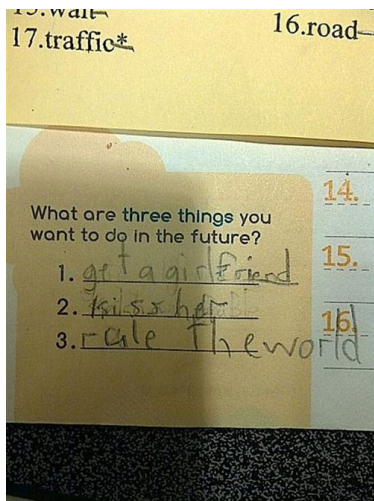 15.wait
16.road
17.traffic*
14.
What are three things you
want to do in the future?
15.
1. get a girlfriend
2. kilss her
16.
3. rule the world